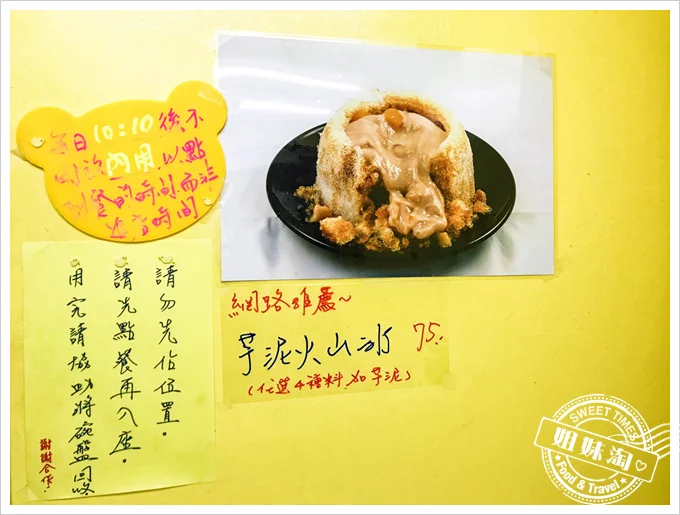 每日10:10後不
開放內用以點
到餐的時間而非
入店時間
網路推薦~
芋泥火山冰 75.
(任選4種料加芋泥)
請勿先佔位置.
請先點餐再入座.
用完請協助將碗盤回收
謝謝合作.
SWEET TIMES
姐妹淘
Food & Travel